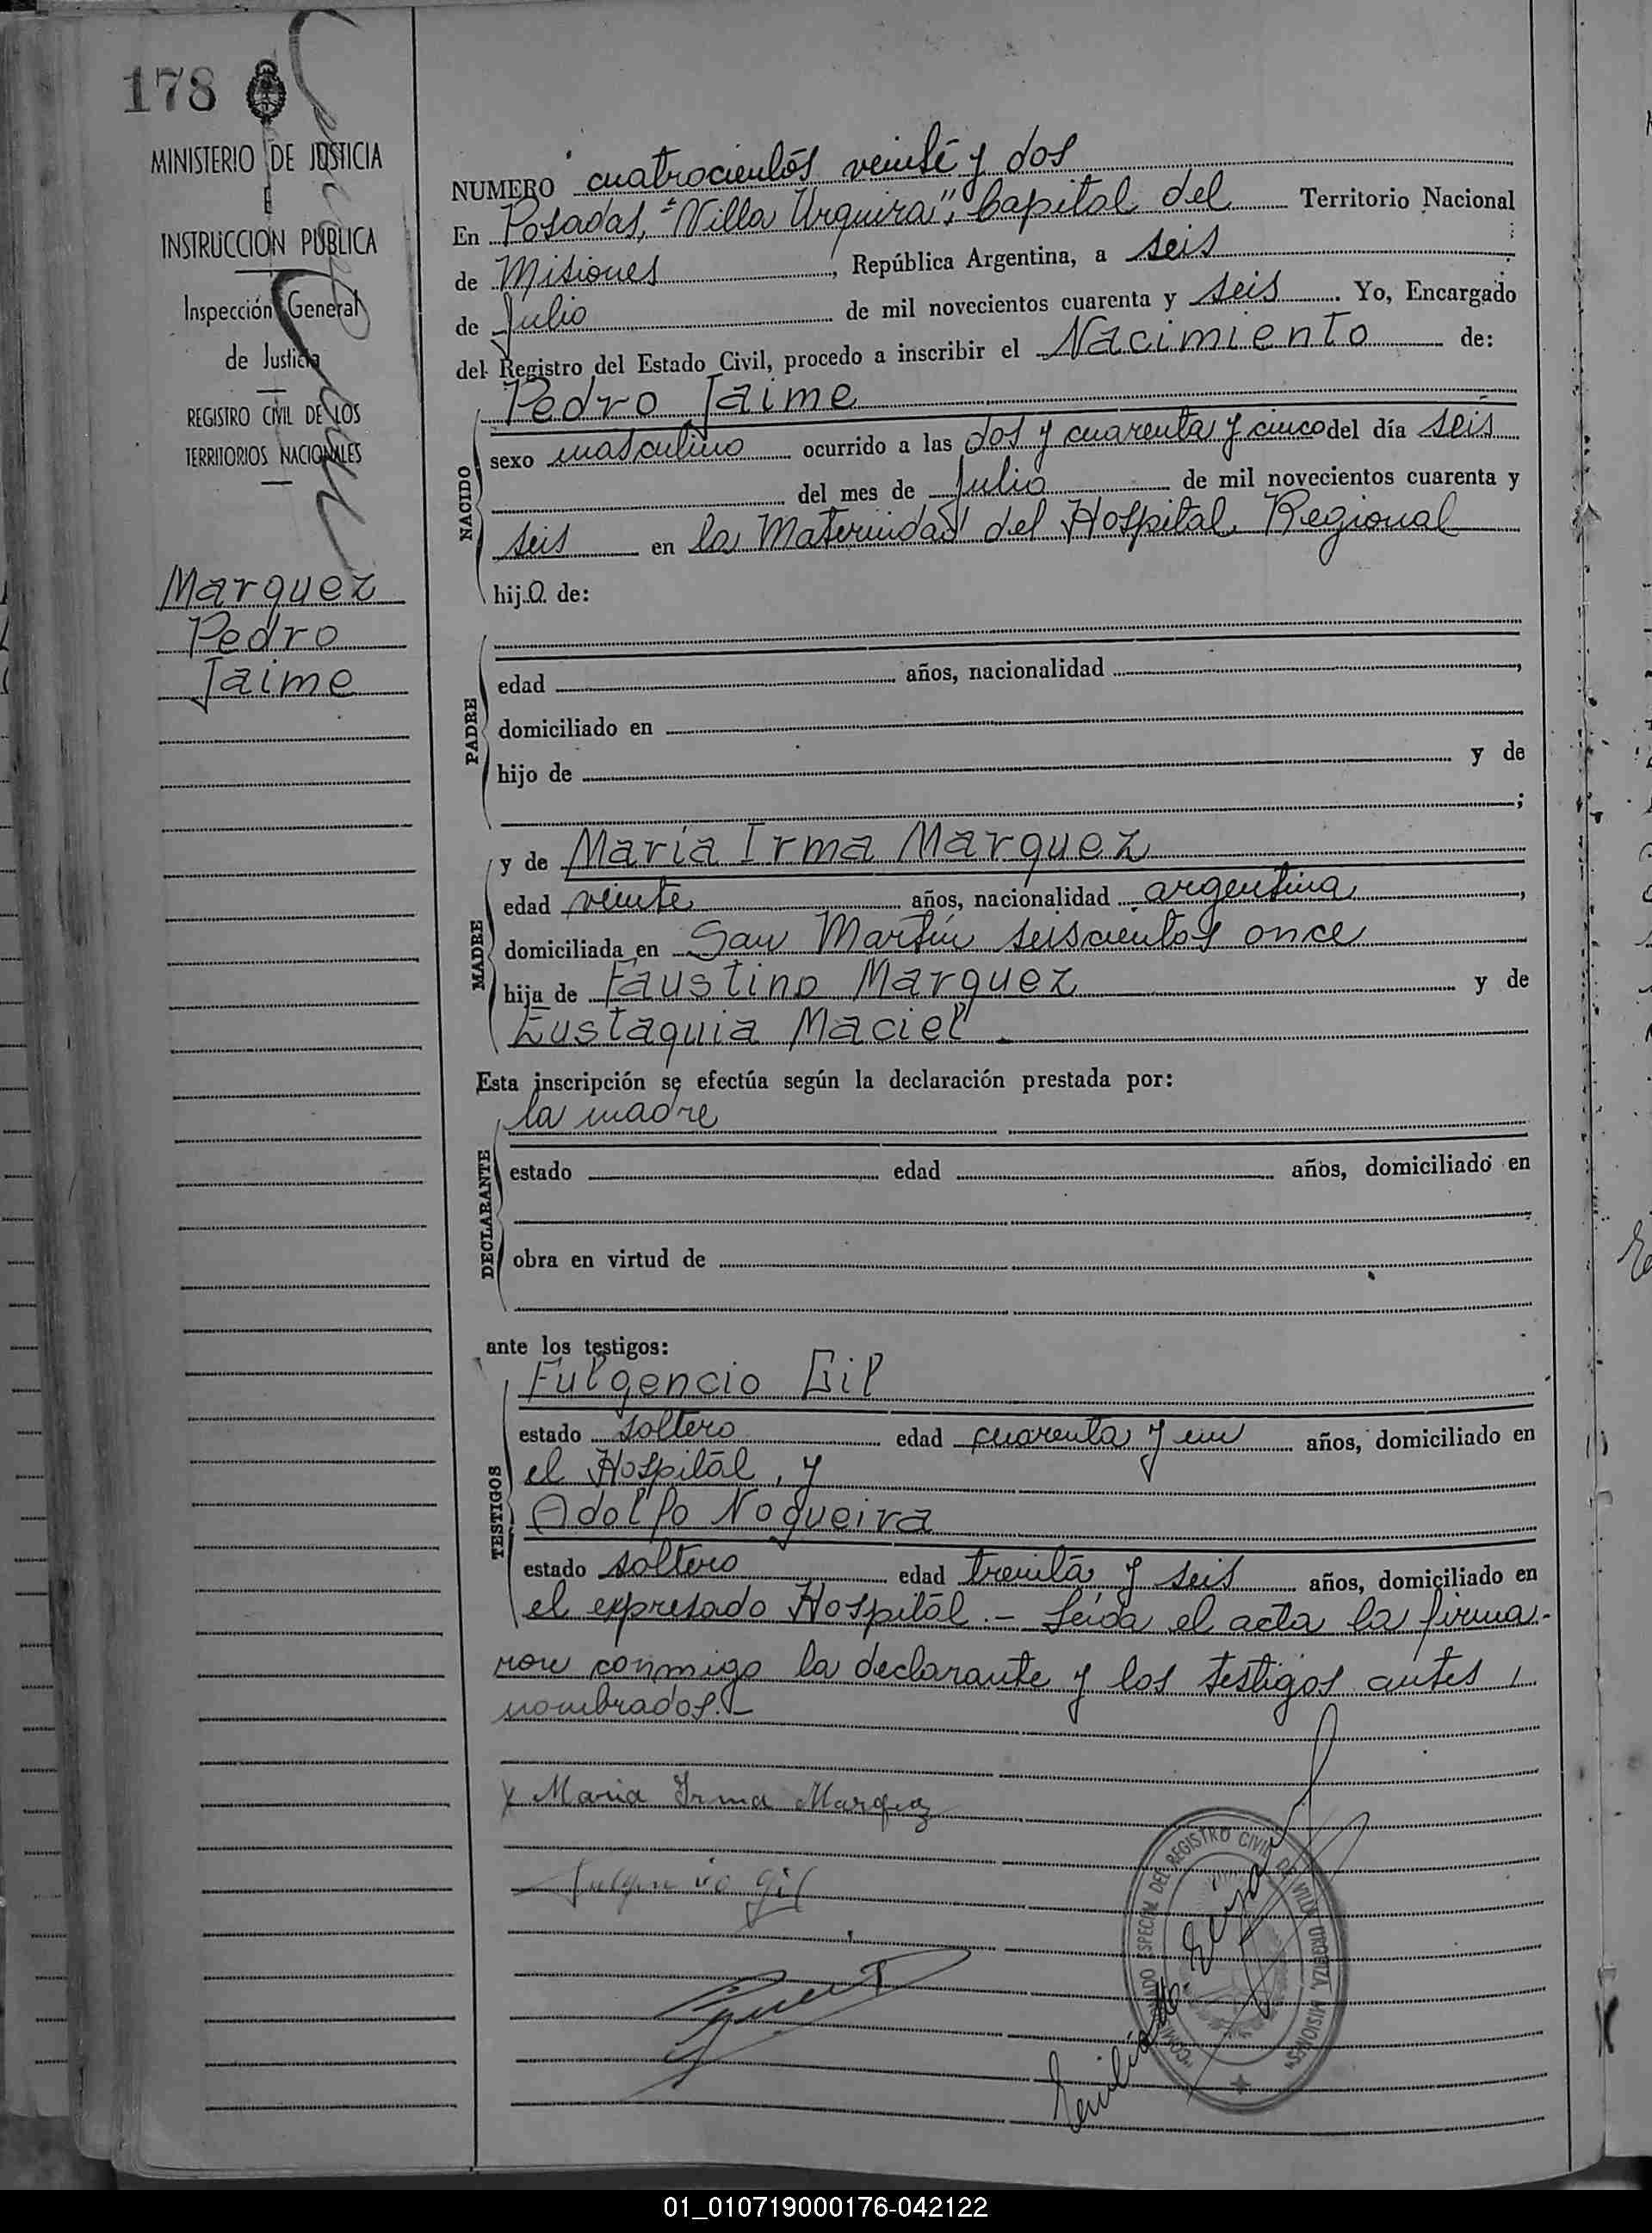 178
MINISTERIO DE JUSTICIA
E
INSTRUCCION PUBLICA
Inspección General
de Justicia
REGISTRO CIVIL DE LOS
TERRITORIOS NACIONALES
Marquez
Pedro
Jaime
NUMERO cuatrocientos veinte y dos
En Posadas, "Villa Urquiza", Capital del Territorio Nacional
de Misiones, República Argentina, a seis
de Julio de mil novecientos cuarenta y seis. Yo, Encargado
del Registro del Estado Civil, procedo a inscribir el Nacimiento de:
Pedro Jaime
NACIDO
sexo masculino ocurrido a las dos y cuarenta y cinco del día seis
del mes de Julio de mil novecientos cuarenta y
seis en la Maternidad del Hospital Regional
hijo de:
PADRE
edad años, nacionalidad ,
domiciliado en
hijo de y de
;
y de María Irma Marquez
MADRE
edad veinte años, nacionalidad argentina,
domiciliada en San Martín seiscientos once
hija de Faustino Marquez y de
Eustaquia Maciel.
Esta inscripción se efectúa según la declaración prestada por:
la madre
DECLARANTE
estado edad años, domiciliado en
obra en virtud de
ante los testigos:
Fulgencio Gil
TESTIGOS
estado soltero edad cuarenta y un años, domiciliado en
el Hospital, y
Adolfo Nogueira
estado soltero edad treinta y seis años, domiciliado en
el expresado Hospital.- Leída el acta la firma-
ron conmigo la declarante y los testigos antes
nombrados.-
x Maria Irma Marquez
Fulgencio Gil
COMISIONADO ESPECIAL DEL REGISTRO CIVIL DE VILLA URQUIZA, MISIONES
01_010719000176-042122